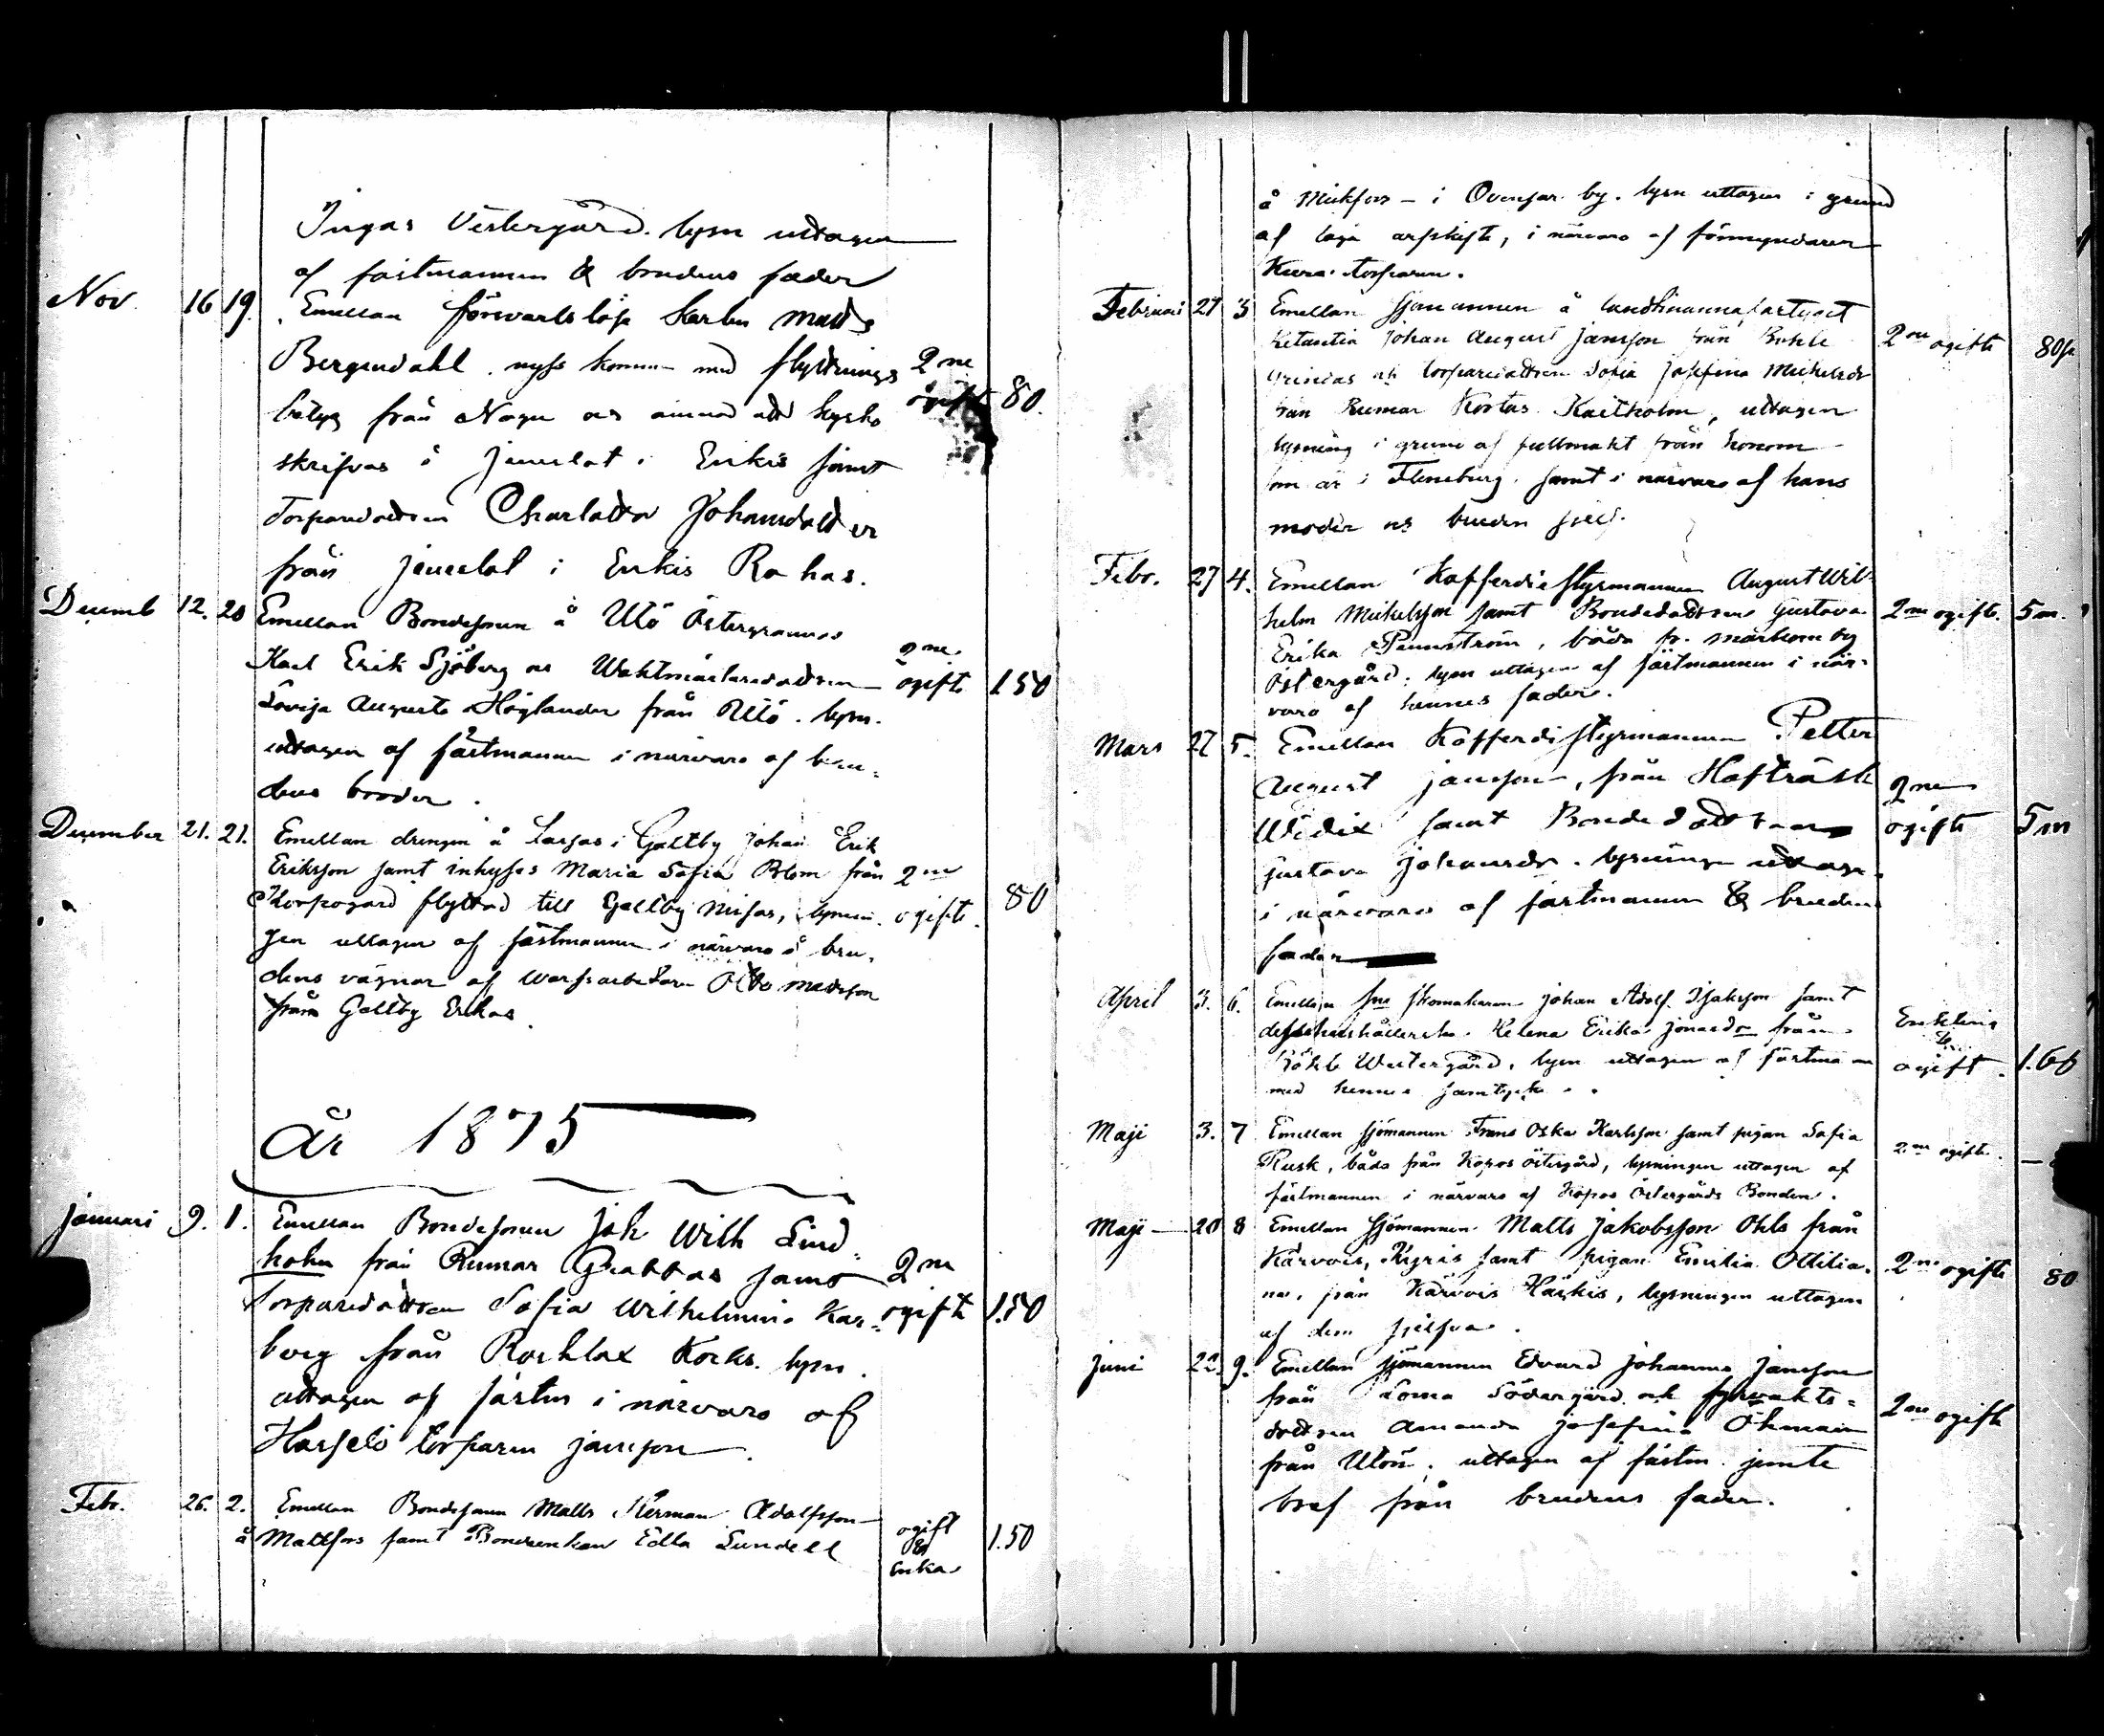 Ingas Vestergård. lysn uttagen
af fästmannen & brudens fader
Nov. 16 19. Emellan försvarslöse Karlen Matts
Bergendahl. nyss kommen med flyttnings 2ne
betyg från Nagu och ämnad att kyrko ogifte 80.
skrifvas å Jenslot i Enkis samt
Torparedottren Charlotta Johansdotter
från Jenslot i Enkis Rohas.
Decemb 12. 20 Emellan Bondesonen å Utö Östergrannas
Karl Erik Sjöberg och Waktmästaredottren 2ne ogifte 1 50
Lovisa Augusta Höglander från Utö. lysn.
uttagen af fästmannen i närvaro af bru-
dens broder.
December 21. 21. Emellan drengen å Larsas i Galtby Johan Erik
Eriksson samt inhyses Maria Sofia Blom från 2ne
Korpogård flyttad till Galtby Nisas, lysnin- ogifte. 80
gen uttagen af fästmannen i närvaro å bru-
dens vägnar af Warfsarbetaren Otto Madsson
från Galtby Erikas.
År 1875
Januari 9. 1. Emellan Bondesonen Joh Wilh Lind-
holm från Rumar Grabbas samt 2ne
Torparedottren Sofia Wilhelmina Kar- ogifte 1.50
berg från Roslax Korks. lysn.
uttagen af fästm i närvaro af
Harselö torparen Jansson.
Febr. 26. 2. Emellan Bondesonen Matts Herman Adolfsson ogift
å Mattfors samt Bondeenkan Edla Lundell & enka 1.50
å Mickfors – i Ovensor. by. lysn uttagen i grund
af laga arfskifte, i närvaro af förmyndaren
Kura torparen.
Februari 27 3 Emellan Sjömannen å landtmannafartyget
Johan August Jansson från Bohle 2ne ogifte 80p
Grindas och torparedottren Sofia Josefina Mickelsdr
från Rumar Kortas Kaitholm, uttagen
lysning i grund af fullmakt från honom
som är i Flensburg, samt i närvaro af hans
moder och bruden sjelf.
Febr. 27 4. Emellan Kofferdie styrmannen August Wil-
helm Mickelsson samt Bondedottren Gustava 2ne ogifte. 5 m.
Erika Pennström, båda fr. Märtkom by
Östergård; lysn uttagen af fästmannen i när-
varo af hennes fader.
Mars 27 5. Emellan Kofferdi styrmannen Petter
August Jansson, från Hafträsk 2ne
Widix samt Bondedottren ogifte 5 m
Gustava Johansdr. lysningen uttagen
i närvaro af fästmannen & brudens
fader
April 3. 6. Emellan skomakaren Johan Adolf Isaksson samt
dess hushållerska Helena Erika Jonasdr från Enkling
Böhle Westergård, lysn uttagen af fästman & ogift. 1.60
med hennes samtycke.
Maji 3. 7 Emellan sjömannen Frans Oskar Karlsson samt pigan Sofia
Rusk, båda från Kopos Östergård, lysningen uttagen af 2ne ogifte.
fästmannen i närvaro af Kopos Östergårds Bonden.
Maji 20 8 Emellan Sjömannen Matts Jakobsson Ohls från
Kärvois, Rygris samt pigan Emilia Ottilia- 2ne ogifte 80
na, från Kärvois Härkis, lysningen uttagen
af dem sjelfva.
Juni 22. 9. Emellan sjömannen Edvard Johannes Jansson
från Loma Södergård och fyrvakts- 2ne ogifte
dottren Amanda Josefina Öhman
från Utön, uttagen af fästm. jemte
bref från brudens fader.